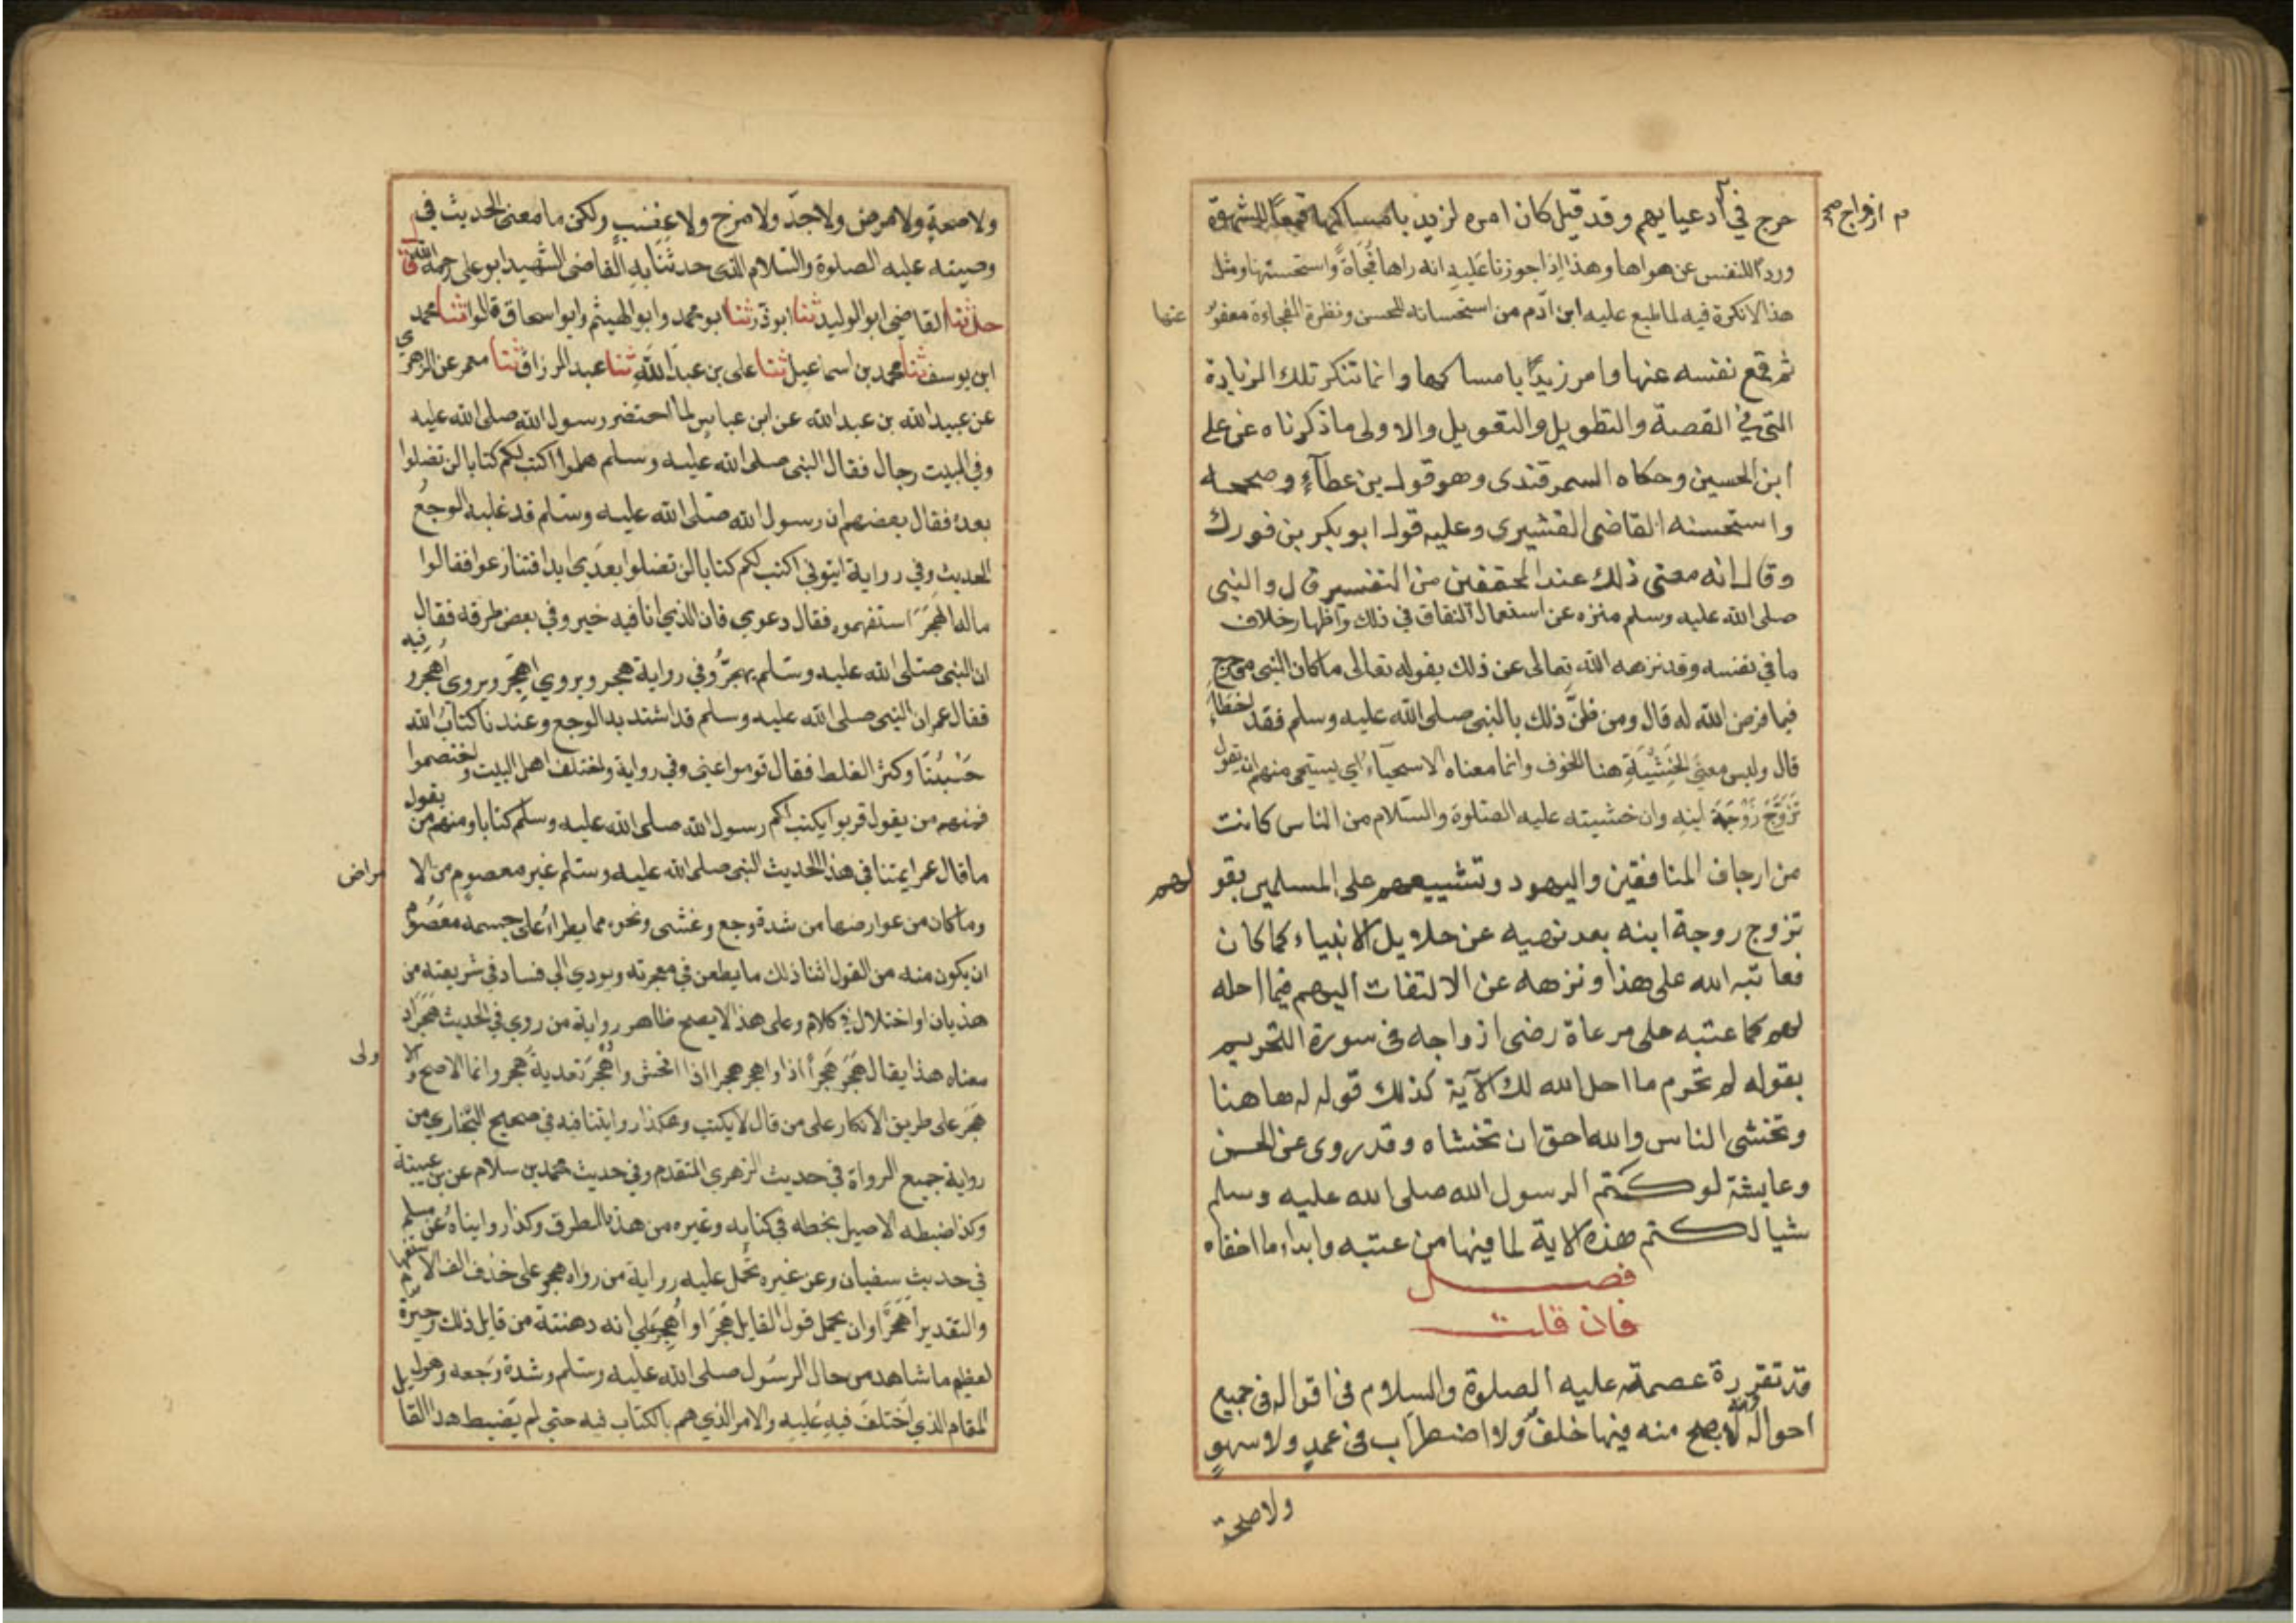 حرج في ادعيايهم وقد قيل كان امره لزيد بامساكها قمعًا للشهوة
م ازواج صح
وردًا للنفس عن هواها وهذا اذا جوزنا عليه انه راها فُجَاةً واستحسنها ومثل
هذا لا نكرة فيه لما طبع عليه ابن آدم من استحسانه للحسن ونظرة الفجاءة معفوٌ
عنها
ثم قمع نفسه عنها وامر زيدًا بامساكها وانما تنكر تلك الزيادة
التي في القصة والتطويل والتقويل والاولى ما ذكرناه عن على
ابن الحسين وحكاه السمرقندى وهو قول بن عطآءٍ وصححه
واستحسنه القاضى القشيرى وعليه قول ابو بكر بن فورك
وقال انه معنى ذلك عند المحققين من التفسير قال والنبى
صلى الله عليه وسلم منزه عن استعمال النفاق في ذلك واظهار خلاف
ما في نفسه وقد نزهه الله تعالى عن ذلك بقوله تعالى ما كان النبى من حرج
فيما فرض الله له قال ومن ظنّ ذلك بالنبى صلى الله عليه وسلم فقد اخطأ
قال وليس معنى الخَشْيَةِ هنا للخوف وانما معناه الاستحيآءُ اي يستحى منهم ان يقول
تَزَوَّجَ زَوْجَةَ ابنه وان خشيته عليه الصلوة والسّلام من الناس كانت
من ارجاف المنافقين واليهود وتشييعهم على المسلمين بقو
لهم
تزوج زوجة ابنه بعد نهيه عن حلايل الانبياء كما كان
فعاتبه الله على هذا ونزهه عن الالتفات اليهم فيما احله
لهم كما عتبه على مرعاة رضى ازواجه فى سورة التحريم
بقوله لم تحرم ما احل الله لك الآية كذلك قوله له هاهنا
وتخشى الناس والله احق ان تخشاه وقد روى عن الحسن
وعايشة لو كتم الرسول الله صلى الله عليه وسلم
شيا لكتم هذه الاية لما فيها من عتبه وابداء ما اخفاه
فصل
فان قلت
قد تقررة عصمته عليه الصلوة والسلام فى اقواله فى جميع
احواله وانه لا يصح منه فيها خلفٌ ولا اضطرَاب فى عمدٍ ولا سهوٍ
ولا صحة
ولا صحةٍ ولا مرض ولا جدّ ولا مزح ولا غضبٍ ولكن ما معنى الحديث في
وصيته عليه الصلوة والسّلام الذى حدثَنَا به القاضى الشهيد ابو على رحمه الله قا
حدثنا القاضى ابو الوليد ثنا ابو ذر ثنا ابو محمد وابو الهيثم وابو اسحاق قالوا ثنا محمد
ابن يوسف ثنا محمد بن اسماعيل ثنا على بن عبد الله ثنا عبد الرزاق ثنا معمر عن الزهري
عن عبيد الله بن عبد الله عن ابن عباس لما احتضر رسول الله صلى الله عليه
وفي البيت رجال فقال النبى صلى الله عليه وسلم هلموا اكتب لكم كتابا لن تضلوا
بعده فقال بعضهم ان رسول الله صلى الله عليه وسلم قد غلبه الوجعُ
الحديث وفي رواية ايتوني اكتب لكم كتابا لن تضلوا بعدي ابدا فتنازعوا فقالوا
ماله اهَجَرَ استفهموه فقال دعوني فان الذي انا فيه خير وفي بعض طرقه فقال
ان النبى صلى الله عليه وسلم يهجرُ وفي رواية هجر ويروي اهجر ويروى اُهجرٌ وفيه
فقال عمر ان النبى صلى الله عليه وسلم قد اشتد به الوجع وعندنا كتابُ الله
حَسْبُنَا وكثر الغلط فقال قوموا عنى وفي رواية واختلف اهل البيت واختصموا
فمنهم من يقول قربوا يكتب لكم رسول الله صلى الله عليه وسلم كتابا ومنهم من يقول
ما قال عمر ايمتنا في هذا الحديث النبى صلى الله عليه وسلم غير معصوم من الا
مراض
وما كان من عوارضها من شدة وجع وغشى ونحوه مما يطراءُ على جسمه معصوم
ان يكون منه من القول اثنا ذلك ما يطعن في معجزته ويودي الى فساد في شريعته من
هذيان او اختلال في كلام وعلى هذا لا يصح ظاهر رواية من روي في الحديث هَجَرَ اذ
معناه هذا يقال هَجَرَ هُجرًا اذا واهجر هجرا اذا افحش واهْجَرَ تعدية هجر وانما الاصح والا
ولى
هَجَر على طريق الانكار على من قال لا يكتب وهكذا روايتنا فيه في صحيح البُخاري من
رواية جميع الرواة في حديث الزهري المتقدم وفي حديث محمد بن سلام عن بن عيينة
وكذا ضبطه الاصيل بخطه في كتابه وغيره من هذه الطرق وكذا رويناهُ عن مسلم
في حديث سفيان وعن غيره تُحمل عليه رواية من رواه هجر على حذف الف الاستفهام
والتقدير أهَجَرَ او ان يحمل قول القايل هَجَرَ او اُهجِرَ على انه دهشة من قايل ذلك وحيرة
لعظيم ما شاهد من حال الرسُول صلى الله عليه وسلم وشدة وَجعه وهول
المقام الذي اختلفَ فيه عَليه والامر الذي هم بالكتاب فيه حتى لم يَضبط هذا القا
يل